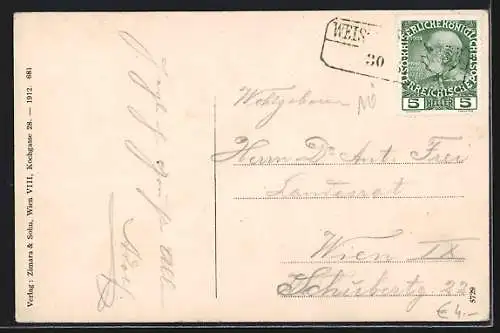 WEIS
30
KAISERLICHE KÖNIGLICHE
ÖSTERREICHISCHE
5 HELLER 5
Wohlgeboren
NÖ
Herrn Dr Ant. Frei
Landesrat
Wien IX
Schubertg 22
€ 4.–
5729
Verlag: Zimara & Sohn, Wien VIII, Kochgasse 28. — 1912. 681